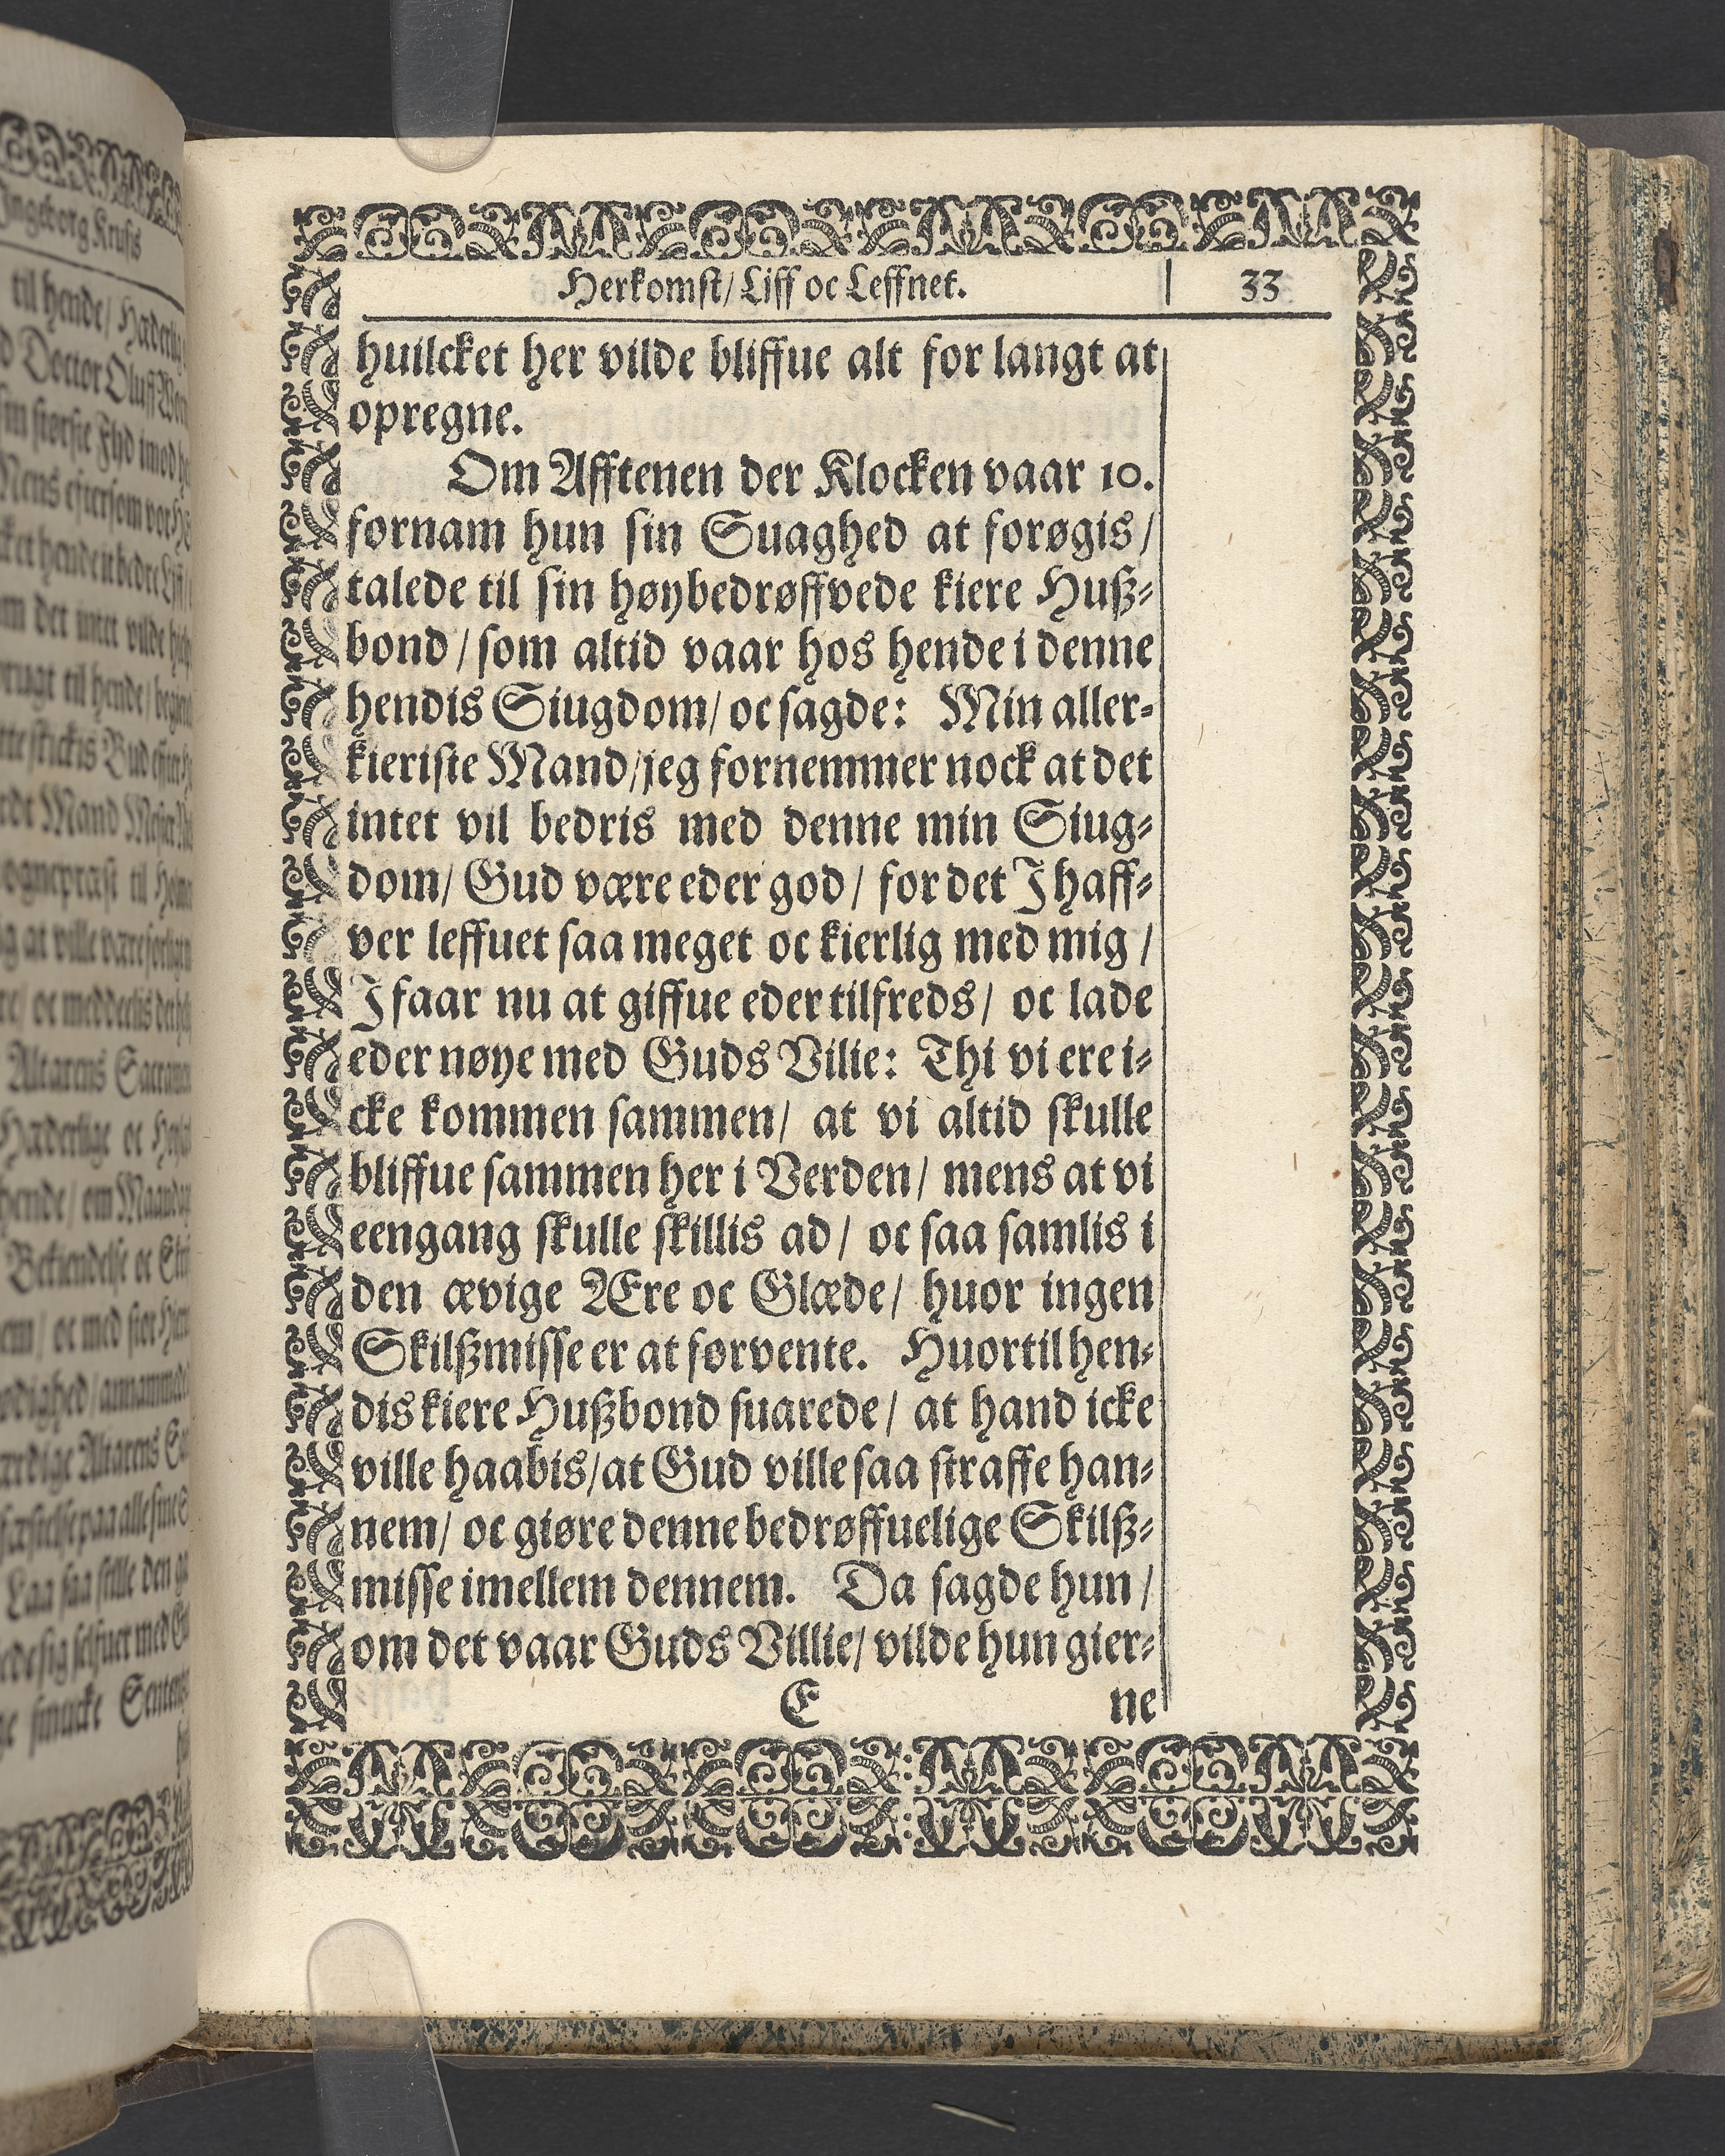 Herkomst/ Liff oc Leffnet. 33
huilcket her vilde bliffue alt for langt at
opregne.
Om Afftenen der Klocken vaar 10.
fornam hun sin Suaghed at forøgis/
talede til sin høybedrøffvede kiere Huß-
bond/ som altid vaar hos hende i denne
hendis Siugdom/ oc sagde: Min aller-
kieriste Mand/ jeg fornemmer nock at det
intet vil bedris med denne min Siug-
dom/ Gud være eder god/ for det J haff-
ver leffuet saa meget oc kierlig med mig/
J faar nu at giffue eder tilfreds/ oc lade
eder nøye med Guds Vilie: Thi vi ere i-
cke kommen sammen/ at vi altid skulle
bliffue sammen her i Verden/ mens at vi
eengang skulle skillis ad/ oc saa samlis i
den ævige Ære oc Glæde/ huor ingen
Skilßmisse er at forvente. Huortil hen-
dis kiere Hußbond suarede/ at hand icke
ville haabis/ at Gud ville saa straffe han-
nem/ oc giøre denne bedrøffuelige Skilß-
misse imellem dennem. Da sagde hun/
om det vaar Guds Villie/ vilde hun gier-
E ne
Ingeborg Krusis
til hende/
Doctor Oluff
vilde
til hende/
Bud
Mand
til
Altarens
oc
hende/ om
Bekiendelse oc
oc med stor
Altarens
paa alle sine
Laa saa stille den
sig selfuer med
smucke